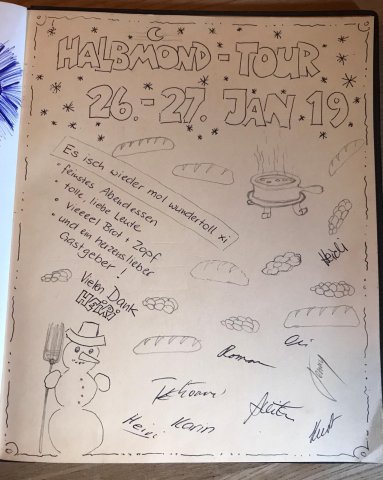 HALBMOND-TOUR
26.-27. JAN 19
Es isch wieder mol wundertoll xi
• feinstes Abendessen
• tolle, liebe Leute
• vieeeel Brot + Zopf
• und ein herzenslieber
Gastgeber!
Vielen Dank
HEIRI
Heidi
Roman
Heiri Karin